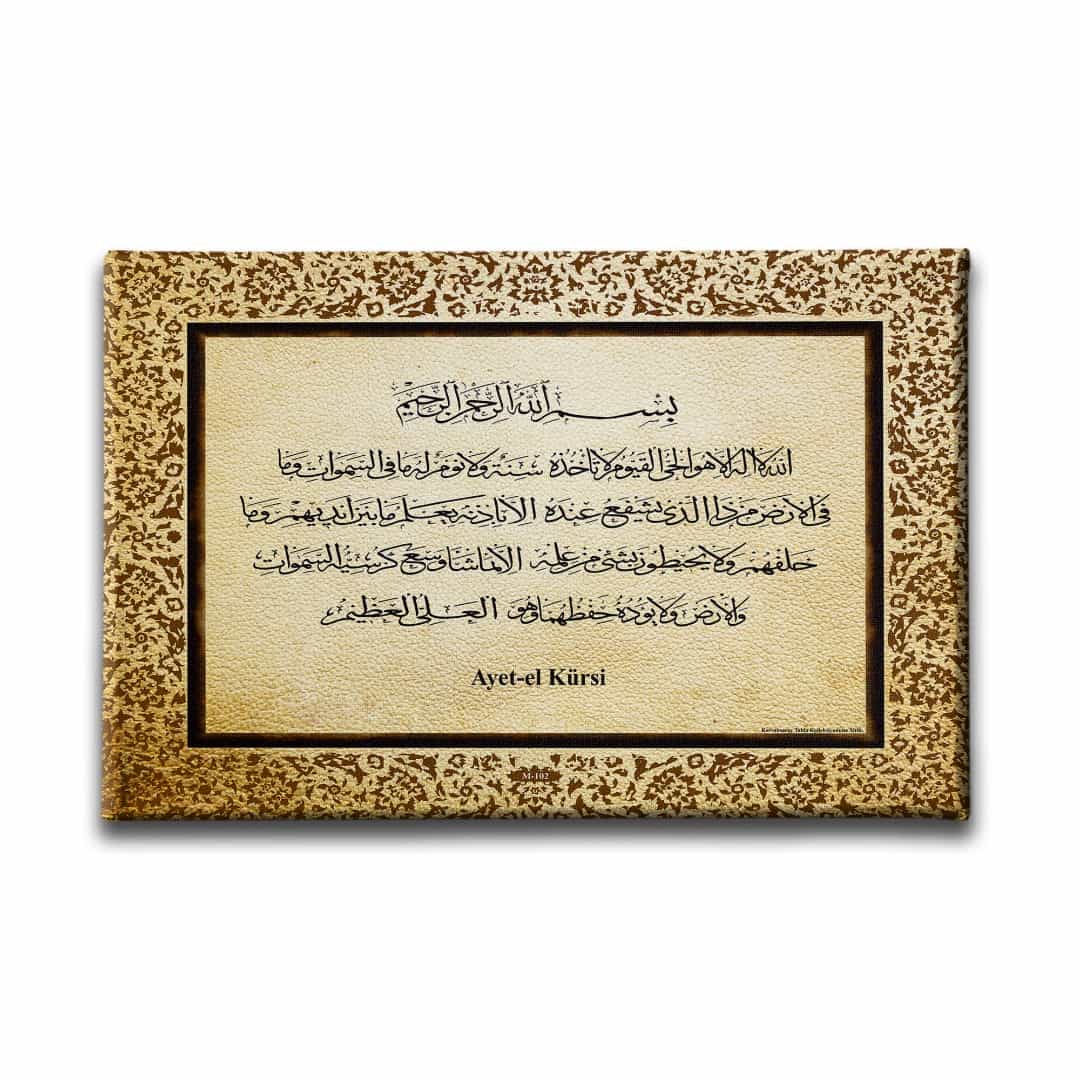 بِسْمِ اللهِ الرَّحْمٰنِ الرَّحِيمِ
الله لا اله الا هو الحي القيوم لا تأخذه سنة ولا نوم له ما في السموات وما
في الارض من ذا الذي يشفع عنده الا باذنه يعلم ما بين ايديهم وما
خلفهم ولا يحيطون بشئ من علمه الا بما شا وسع كرسيه السموات
والارض ولا يوده حفظهما وهو العلى العظيم
Ayet-el Kürsi
M-102